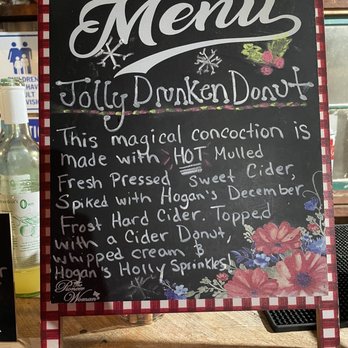 Menu
Jolly Drunken Donut
This magical concoction is
made with HOT Mulled
Fresh Pressed Sweet Cider,
Spiked with Hogan's December
Frost Hard Cider. Topped
with a Cider Donut,
whipped cream &
Hogan's Holly Sprinkles!
The
Pioneer
Woman